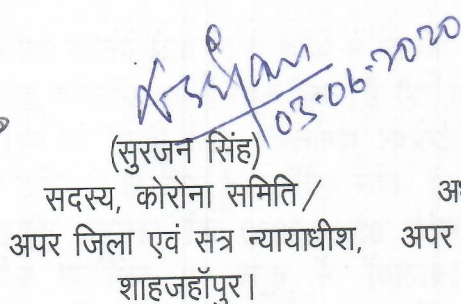 03-06-2020
(सुरजन सिंह)
सदस्य, कोरोना समिति/ अध
अपर जिला एवं सत्र न्यायाधीश, अपर
शाहजहॉपुर।